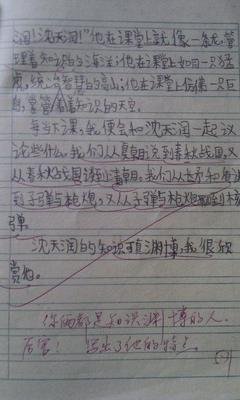 润！沈天润！"他在课堂上就像一条龙，管
理着知识的海洋；他在课堂上如同一只猛
虎，统治智慧的高山；他在课堂上仿佛一只巨
鹰，掌管着知识的天空。
每当下课，我便会和沈天润一起议
论些什么。我们从夏朝说到春秋战国，又
从春秋战国谈到清朝。我们从长矛和盾说
到子弹与枪炮，又从子弹与枪炮到核
弹
沈天润的知识可真渊博，我很欣
赏他。
你俩都是知识渊博的人。
厉害！ 写出了他的特点。